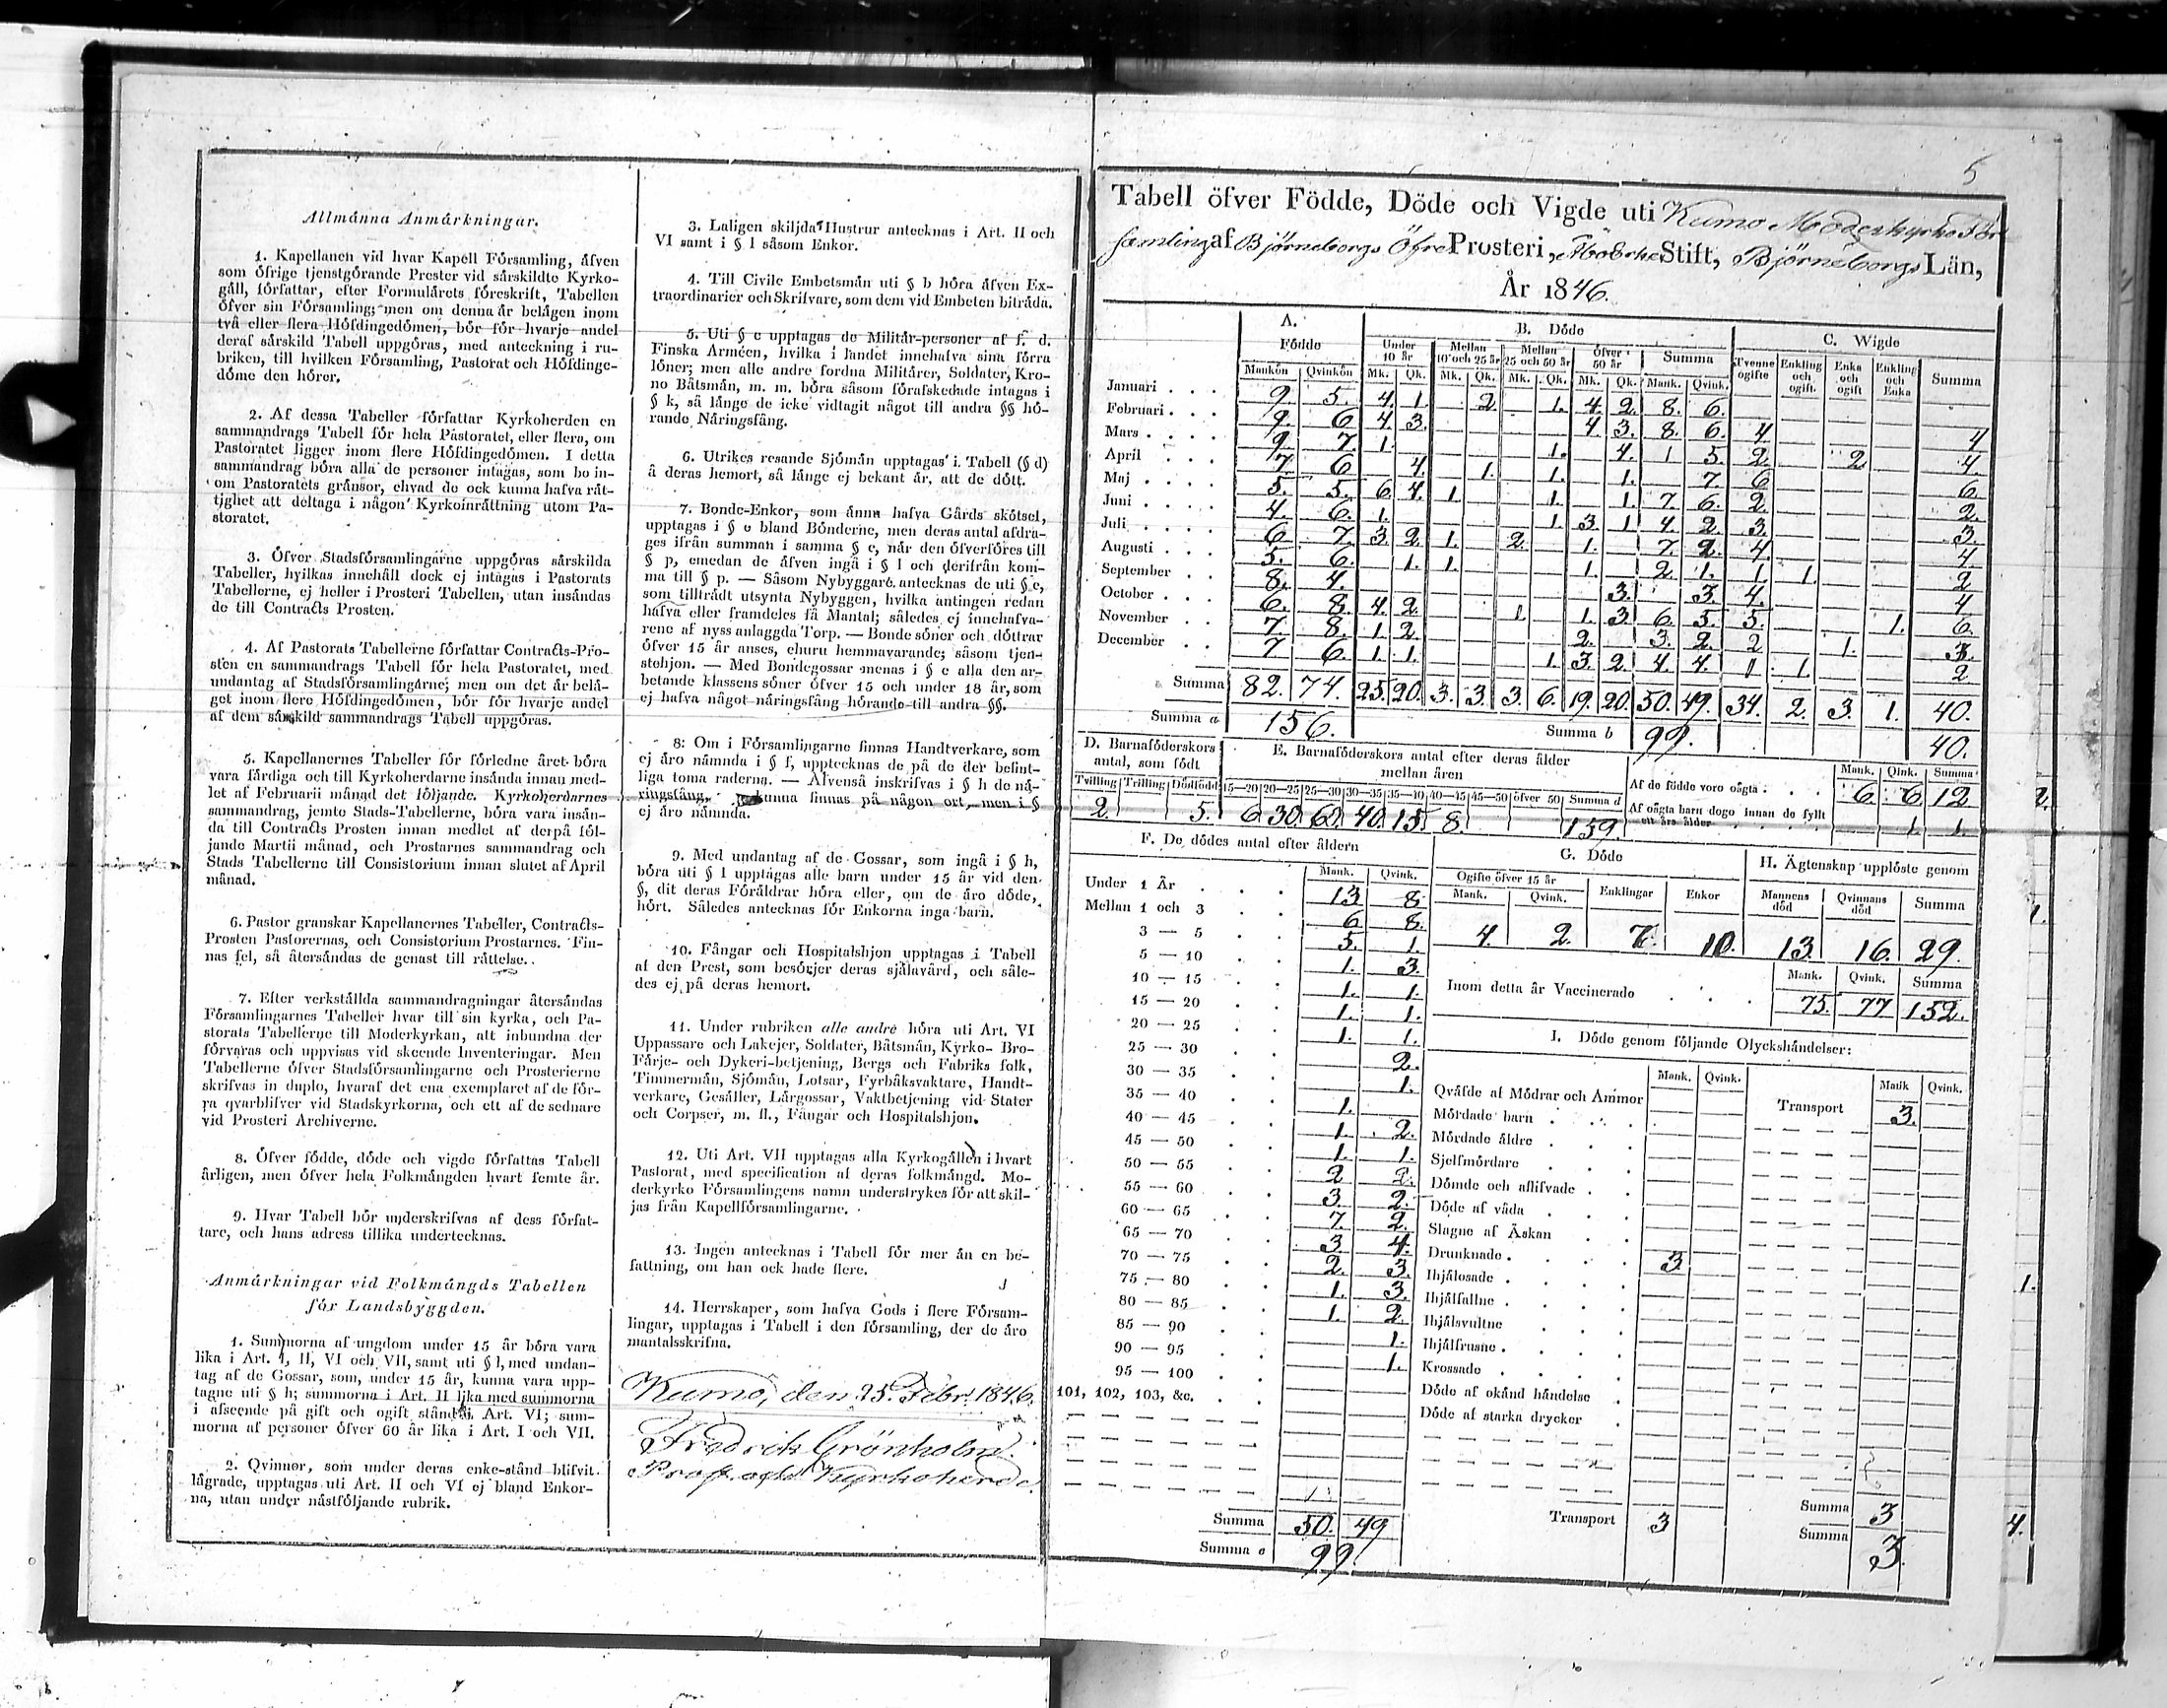 Allmänna Anmärkningar.
1. Kapellanen vid hvar Kapell Församling, äfven
som öfrige tjenstgörande Prester vid särskildte Kyrko-
gäll, författar, efter Formulärets föreskrift, Tabellen
öfver sin Församling; men om denna är belägen inom
två eller flera Höfdingedömen, bör för hvarje andel
deraf särskild Tabell uppgöras, med anteckning i ru-
briken, till hvilken Församling, Pastorat och Höfdinge-
döme den hörer.
2. Af dessa Tabeller författar Kyrkoherden en
sammandrags Tabell för hela Pastoratet, eller flera, om
Pastoratet ligger inom flere Höfdingedömen. I detta
sammandrag böra alla de personer intagas, som bo in-
om Pastoratets gränsor, ehvad de ock kunna hafva rät-
tighet att deltaga i någon Kyrkoinrättning utom Pa-
storatet.
3. Öfver Stadsförsamlingarne uppgöras särskilda
Tabeller, hvilkas innehåll dock ej intagas i Pastorats
Tabellerne, ej heller i Prosteri Tabellen, utan insändas
de till Contracts Prosten.
4. Af Pastorats Tabellerne författar Contracts-Pro-
sten en sammandrags Tabell för hela Pastoratet, med
undantag af Stadsförsamlingarne; men om det är belä-
get inom flere Höfdingedömen, bör för hvarje andel
af dem särskild sammandrags Tabell uppgöras.
5. Kapellanernes Tabeller för förledne året böra
vara färdiga och till Kyrkoherdarne insända innan med-
let af Februarii månad det följande. Kyrkoherdarnes
sammandrag, jemte Stads-Tabellerne, böra vara insän-
da till Contracts Prosten innan medlet af derpå föl-
jande Martii månad, och Prostarnes sammandrag och
Stads Tabellerne till Consistorium innan slutet af April
månad.
6. Pastor granskar Kapellanernes Tabeller, Contracts-
Prosten Pastorernas, och Consistorium Prostarnes. Fin-
nas fel, så återsändas de genast till rättelse.
7. Efter verkställda sammandragningar återsändas
Församlingarnes Tabeller hvar till sin kyrka, och Pa-
storats Tabellerne till Moderkyrkan, att inbundna der
förvaras och uppvisas vid skeende Inventeringar. Men
Tabellerne öfver Stadsförsamlingarne och Prosterierne
skrifvas in duplo, hvaraf det ena exemplaret af de för-
ra qvarblifver vid Stadskyrkorna, och ett af de sednare
vid Prosteri Archiverne.
8. Öfver födde, döde och vigde författas Tabell
årligen, men öfver hela Folkmängden hvart femte år.
9. Hvar Tabell bör underskrifvas af dess förfat-
tare, och hans adress tillika undertecknas.
Anmärkningar vid Folkmängds Tabellen
för Landsbyggden.
1. Summorna af ungdom under 15 år böra vara
lika i Art. I, II, VI och VII, samt uti § l, med undan-
tag af de Gossar, som, under 15 år, kunna vara upp-
tagne uti § h; summorna i Art. II lika med summorna
i afseende på gift och ogift stånd i Art. VI; sum-
morna af personer öfver 60 år lika i Art. I och VII.
2. Qvinnor, som under deras enke-stånd blifvit
lägrade, upptagas uti Art. II och VI ej bland Enkor-
na, utan under nästföljande rubrik.
3. Laligen skiljda Hustrur antecknas i Art. II och
VI samt i § l såsom Enkor.
4. Till Civile Embetsmän uti § b höra äfven Ex-
traordinarier och Skrifvare, som dem vid Embeten biträda.
5. Uti § c upptagas de Militär-personer af f. d.
Finska Arméen, hvilka i landet innehafva sina förra
löner; men alle andre fordna Militärer, Soldater, Kro-
no Båtsmän, m. m. böra såsom förafskedade intagas i
§ k, så länge de icke vidtagit något till andra §§ hö-
rande Näringsfång.
6. Utrikes resande Sjömän upptagas i Tabell (§ d)
å deras hemort, så länge ej bekant är, att de dött.
7. Bonde-Enkor, som änna hafva Gårds skötsel,
upptagas i § e bland Bönderne, men deras antal afdra-
ges ifrån summan i samma § e, när den öfverföres till
§ p, emedan de äfven ingå i § l och derifrån kom-
ma till § p. — Såsom Nybyggare antecknas de uti § e,
som tillträdt utsynta Nybyggen, hvilka antingen redan
hafva eller framdeles få Mantal; således ej innehafva-
rene af nyss anlaggda Torp. — Bonde söner och döttrar
öfver 15 år anses, ehuru hemmavarande; såsom tjen-
stehjon. — Med Bondegossar menas i § e alla den ar-
betande klassens söner öfver 15 och under 18 år, som
ej hafva något näringsfång hörande till andra §§.
8. Om i Församlingarne finnas Handtverkare, som
ej äro nämnda i § f, upptecknas de på de der befint-
liga toma raderna. — Äfvenså inskrifvas i § h de nä-
ringsfång, kunna finnas på någon ort, men i §
ej äro nämnda.
9. Med undantag af de Gossar, som ingå i § h,
böra uti § l upptagas alle barn under 15 år vid den
§, dit deras Föräldrar höra eller, om de äro döde,
hört. Således antecknas för Enkorna inga barn.
10. Fångar och Hospitalshjon upptagas i Tabell
af den Prest, som besörjer deras själavård, och såle-
des ej på deras hemort.
11. Under rubriken alle andre höra uti Art. VI
Uppassare och Lakejer, Soldater, Båtsmän, Kyrko- Bro-
Färje- och Dykeri-betjening, Bergs och Fabriks folk,
Timmermän, Sjömän, Lotsar, Fyrbåksvaktare, Handt-
verkare, Gesäller, Lärgossar, Vaktbetjening vid Stater
och Corpser, m. fl., Fångar och Hospitalshjon.
12. Uti Art. VII upptagas alla Kyrkogällen i hvart
Pastorat, med specification af deras folkmängd. Mo-
derkyrko Församlingens namn understrykes för att skil-
jas från Kapellförsamlingarne.
13. Ingen antecknas i Tabell för mer än en be-
fattning, om han ock hade flere.
14. Herrskaper, som hafva Gods i flere Försam-
lingar, upptagas i Tabell i den församling, der de äro
mantalsskrifna.
Kumo, den 25. Febr. 1846.
Fredrik Grönholm.
Prost och Kyrkoherde.
5
Tabell öfver Födde, Döde och Vigde uti Kumo Moderkyrko För
samling af Björneborgs Öfre Prosteri, Åbo Erke Stift, Björneborgs Län,
År 1846.
A. Födde B. Döde C. Wigde
Under 10 år Mellan 10 och 25 år Mellan 25 och 50 år Öfver 50 år Summa Tvenne ogifte Enkling och ogift. Enka och ogift Enkling och Enka Summa
Mankön Qvinkön Mk. Qk. Mk. Qk. Mk. Qk. Mk. Qk. Mank. Qvink.
Januari 9. 5. 4. 1. 2. 1. 4. 2. 8. 6.
Februari 9. 6 4. 3. 4. 3. 8. 6. 4 4
Mars 9. 7. 1. 1. 4. 1 5. 2. 2 4.
April 7 6 4. 1. 1. 1. 7 6 6.
Maj 5. 5. 6. 4. 1. 1. 1. 7. 6. 2. 2.
Juni 4. 6. 1. 1 3. 1 4. 2. 3. 3.
Juli 6 7 3. 2. 1. 2. 1. 7. 2. 4. 4
Augusti 5. 6. 1. 1. 1. 2. 1. 1. 1. 2
September 8. 4. 3. 3. 4. 4
October 6. 8. 4. 2. 1. 1. 3 6 5. 5. 1. 6.
November 7. 8. 1. 2. 2. 3. 2. 2 1. 3.
December 7 6. 1. 1. 1. 3. 2. 4. 4. 1 1. 2
Summa 82. 74. 25. 20. 3. 3. 3. 6. 19. 20. 50. 49. 34. 2. 3. 1. 40.
Summa a 156. Summa b 99. 40.
D. Barnaföderskors antal, som födt
Tvilling Trilling Dödfödd
2. 5.
E. Barnaföderskors antal efter deras ålder
mellan åren
15—20 20—25 25—30 30—35 35—40 40—45 45—50 öfver 50 Summa d
6 30. 60. 40. 15. 8. 159
Mank. Qink. Summa
Af de födde voro oägta 6. 6 12
Af oägta barn dogo innan de fyllt
ett års ålder 1. 1.
F. De dödes antal efter åldern
Mank. Qvink.
Under 1 År 13 8.
Mellan 1 och 3 6 8.
3 — 5 5. 1.
5 — 10 1. 3.
10 — 15 1. 1.
15 — 20 1. 1.
20 — 25 1. 1.
25 — 30 2.
30 — 35 1.
35 — 40 1.
40 — 45 1. 2.
45 — 50 1. 1.
50 — 55 2 2.
55 — 60 3. 2.
60 — 65 7. 2.
65 — 70 3 4.
70 — 75 2. 3.
75 — 80 1. 3.
80 — 85 1. 2.
85 — 90 1.
90 — 95 1.
95 — 100
101, 102, 103, &c.
Summa 50. 49
Summa e 99.
G. Döde
Ogifte öfver 15 år Enklingar Enkor
Mank. Qvink.
4. 2. 7. 10.
H. Ägtenskap upplöste genom
Mannens död Qvinnans död Summa
13. 16. 29.
Mank. Qvink. Summa
Inom detta år Vaccinerade 75. 77 152.
I. Döde genom följande Olyckshändelser:
Mank. Qvink. Mank Qvink.
Qväfde af Mödrar och Ammor
Transport 3.
Mördade barn
Mördade äldre
Sjelfmördare
Dömde och aflifvade
Döde af våda
Slagne af Åskan
Drunknade 3
Ihjälosade
Ihjälfallne
Ihjälsvultne
Ihjälfrusne
Krossade
Döde af okänd händelse
Döde af starka drycker
Transport 3
Summa 3
Summa 3.
2.
1.
1.
4.